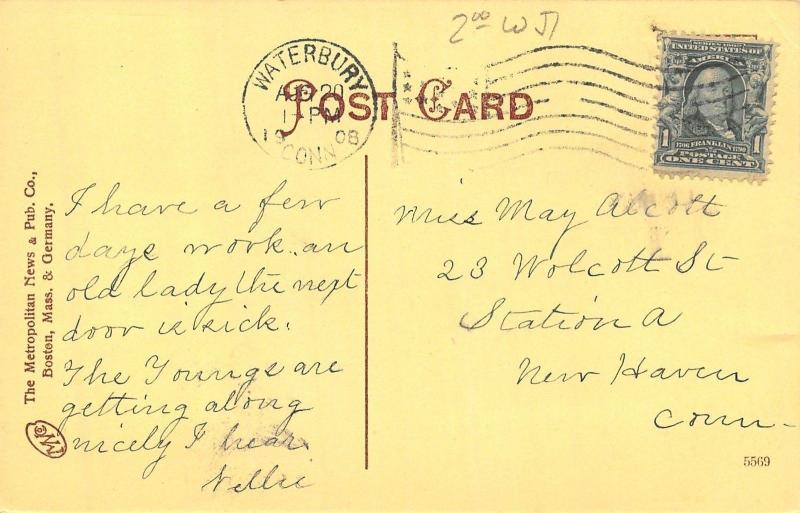 2.00 W
WATERBURY
AUG 20
1- PM
19 08
CONN
POST CARD
SERIES 1902
UNITED STATES OF
AMERICA
1706 FRANKLIN 1790
POSTAGE
1 ONE CENT
The Metropolitan News & Pub. Co.,
Boston, Mass. & Germany.
I have a few
days work. an
old lady the next
door is sick.
The Youngs are
getting along
nicely I hear.
Nellie
Miss May Alcott
23 Wolcott St
Station A
New Haven
Conn-
5569